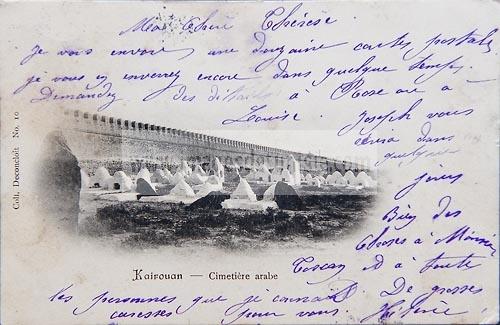 Ma Chère Thérèse
Je vous envoie une douzaine cartes postales
je vous en enverrez encore dans quelque temps.
Demandez des détails à Rose ou à
Louise. Joseph vous
écrira dans
quelques
jours
Bien des
Choses à
et à toute
les personnes que je connais. De grosses
caresses pour vous.
Coll. Deconcloit No. 10
Kairouan — Cimetière arabe